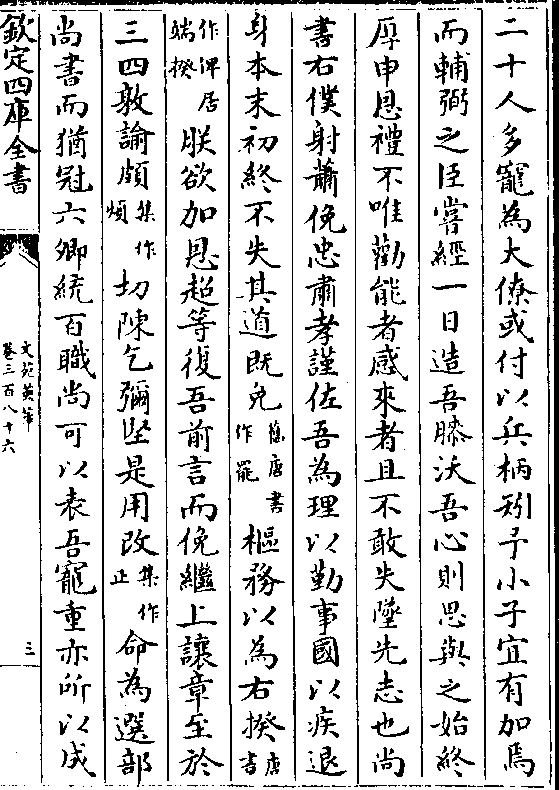 二十人多寵為大僚或付以兵柄矧予小子宜有加焉
而輔弼之臣嘗經一日造吾膝沃吾心則思與之始終
厚申恩禮不唯勸能者感來者且不敢失墜先志也尚
書右僕射蕭俛忠肅孝謹佐吾為理以勤事國以疾退
身本末初終不失其道既免舊唐書作罷樞務以為右揆唐書
作俾居端揆朕欲加恩超等復吾前言而俛繼上讓章至於
三四敦諭頗集作煩切陳乞彌堅是用改集作止命為選部
尚書而猶冠六卿統百職尚可以表吾寵重亦所以成
欽定四庫全書
文苑英華
卷三百八十六
三